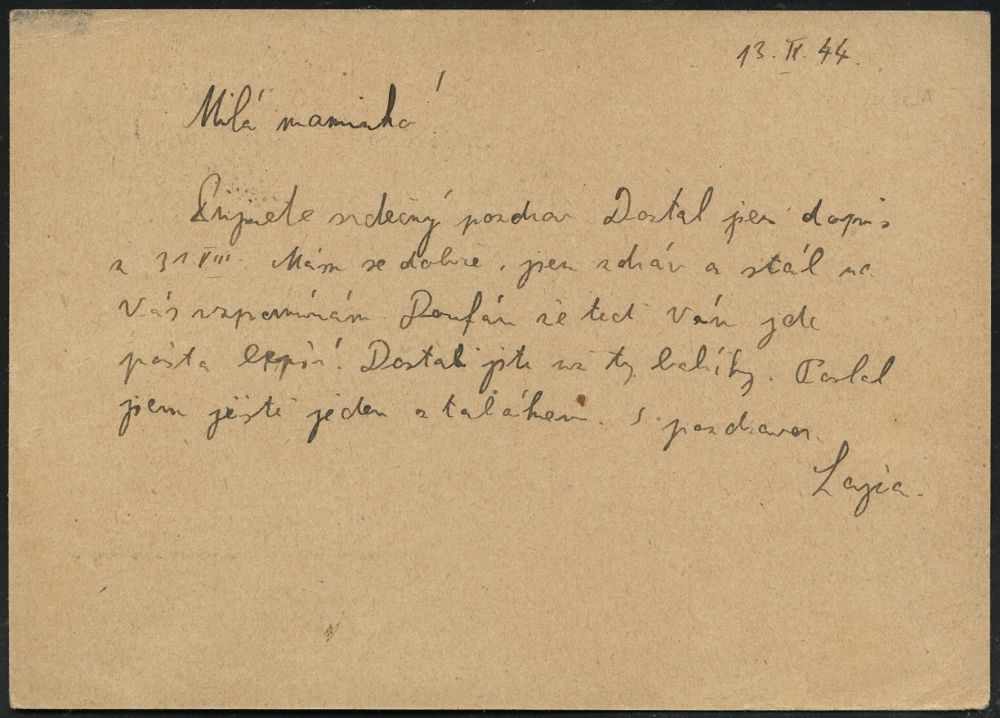 13. IX. 44.
Milá maminko!
Přijměte srdečný pozdrav. Dostal jsem dopis
z 31 VIII. Mám se dobře, jsem zdráv a stál na
Vás vzpomínám. Doufám že teď Vám jde
pošta lépší. Dostali jste už ty balíky. Poslal
jsem ještě jeden s tabákem. S pozdravem